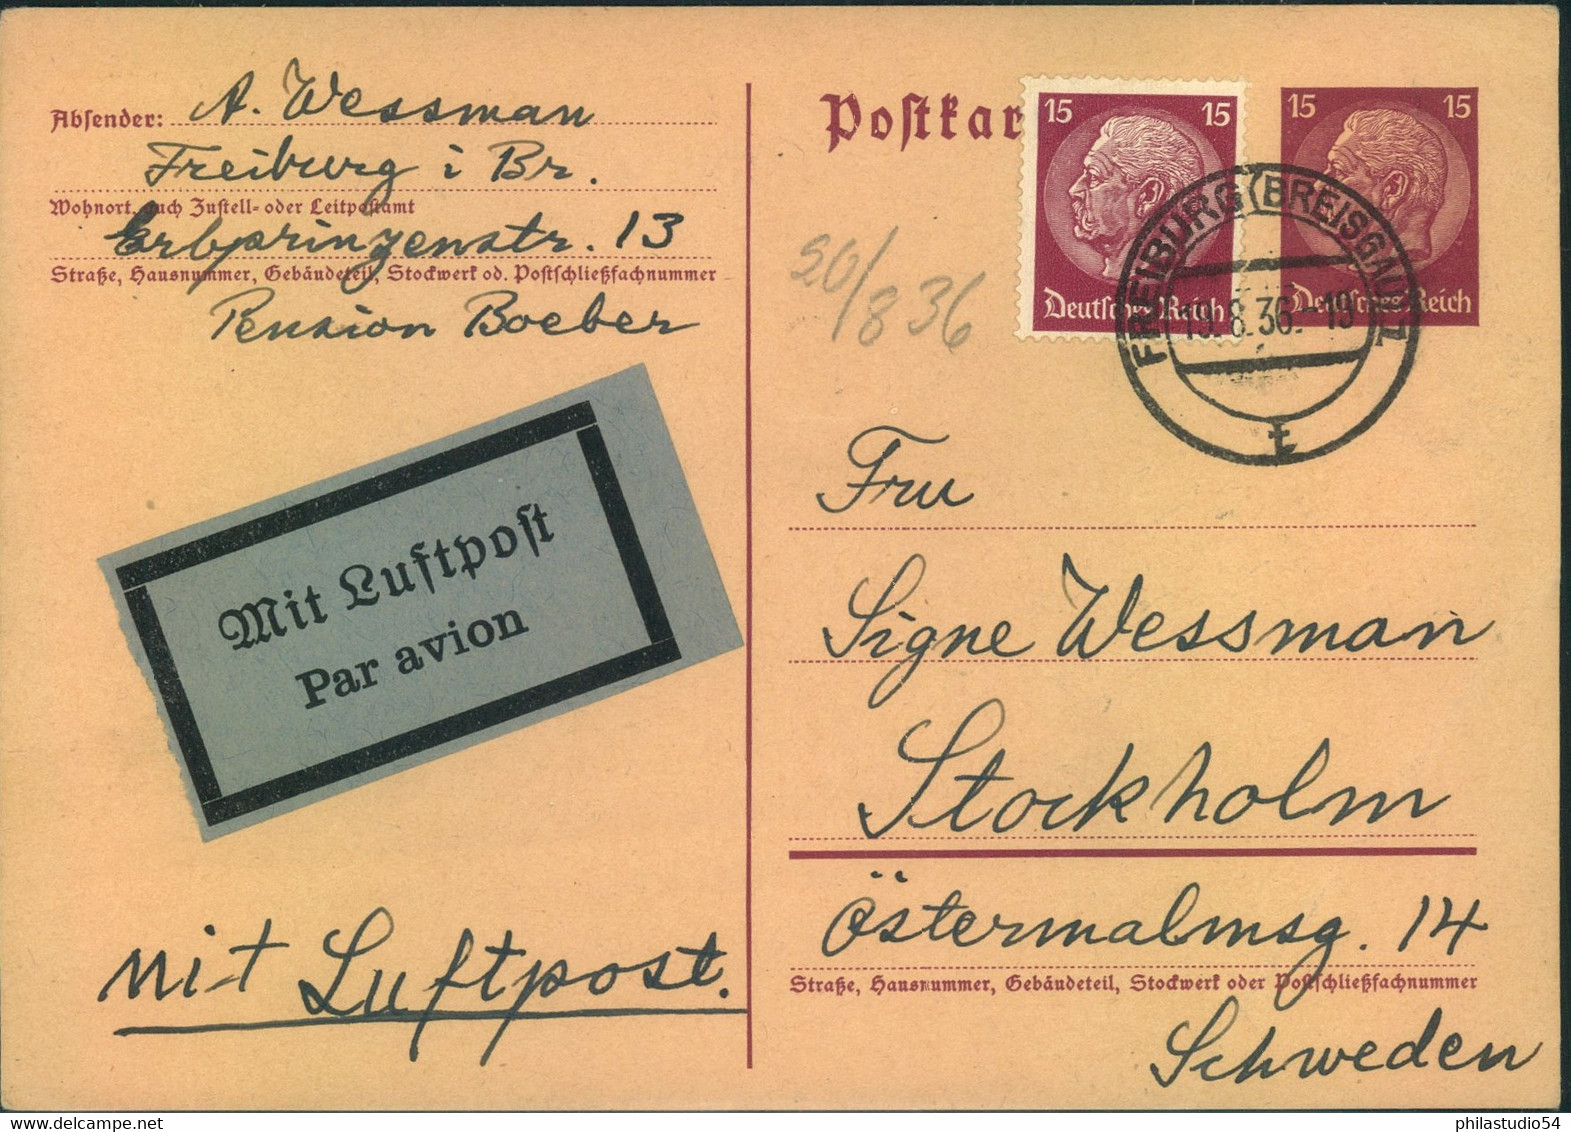 Absender: A. Wessman
Freiburg i Br.
Wohnort, auch Zustell- oder Leitpostamt
Erbprinzenstr. 13
Straße, Hausnummer, Gebäudeteil, Stockwerk od. Postschließfachnummer
Pension Boeber
Mit Luftpost
Par avion
mit Luftpost.
Postkar
15 15
Deutsches Reich
15 15
Deutsches Reich
FREIBURG (BREISGAU) 1
19.8.36.-19
t
20/836
Fru
Signe Wessman
Stockholm
Östermalmsg. 14
Straße, Hausnummer, Gebäudeteil, Stockwerk oder Postschließfachnummer
Schweden
www.delcampe.net
philastudio54